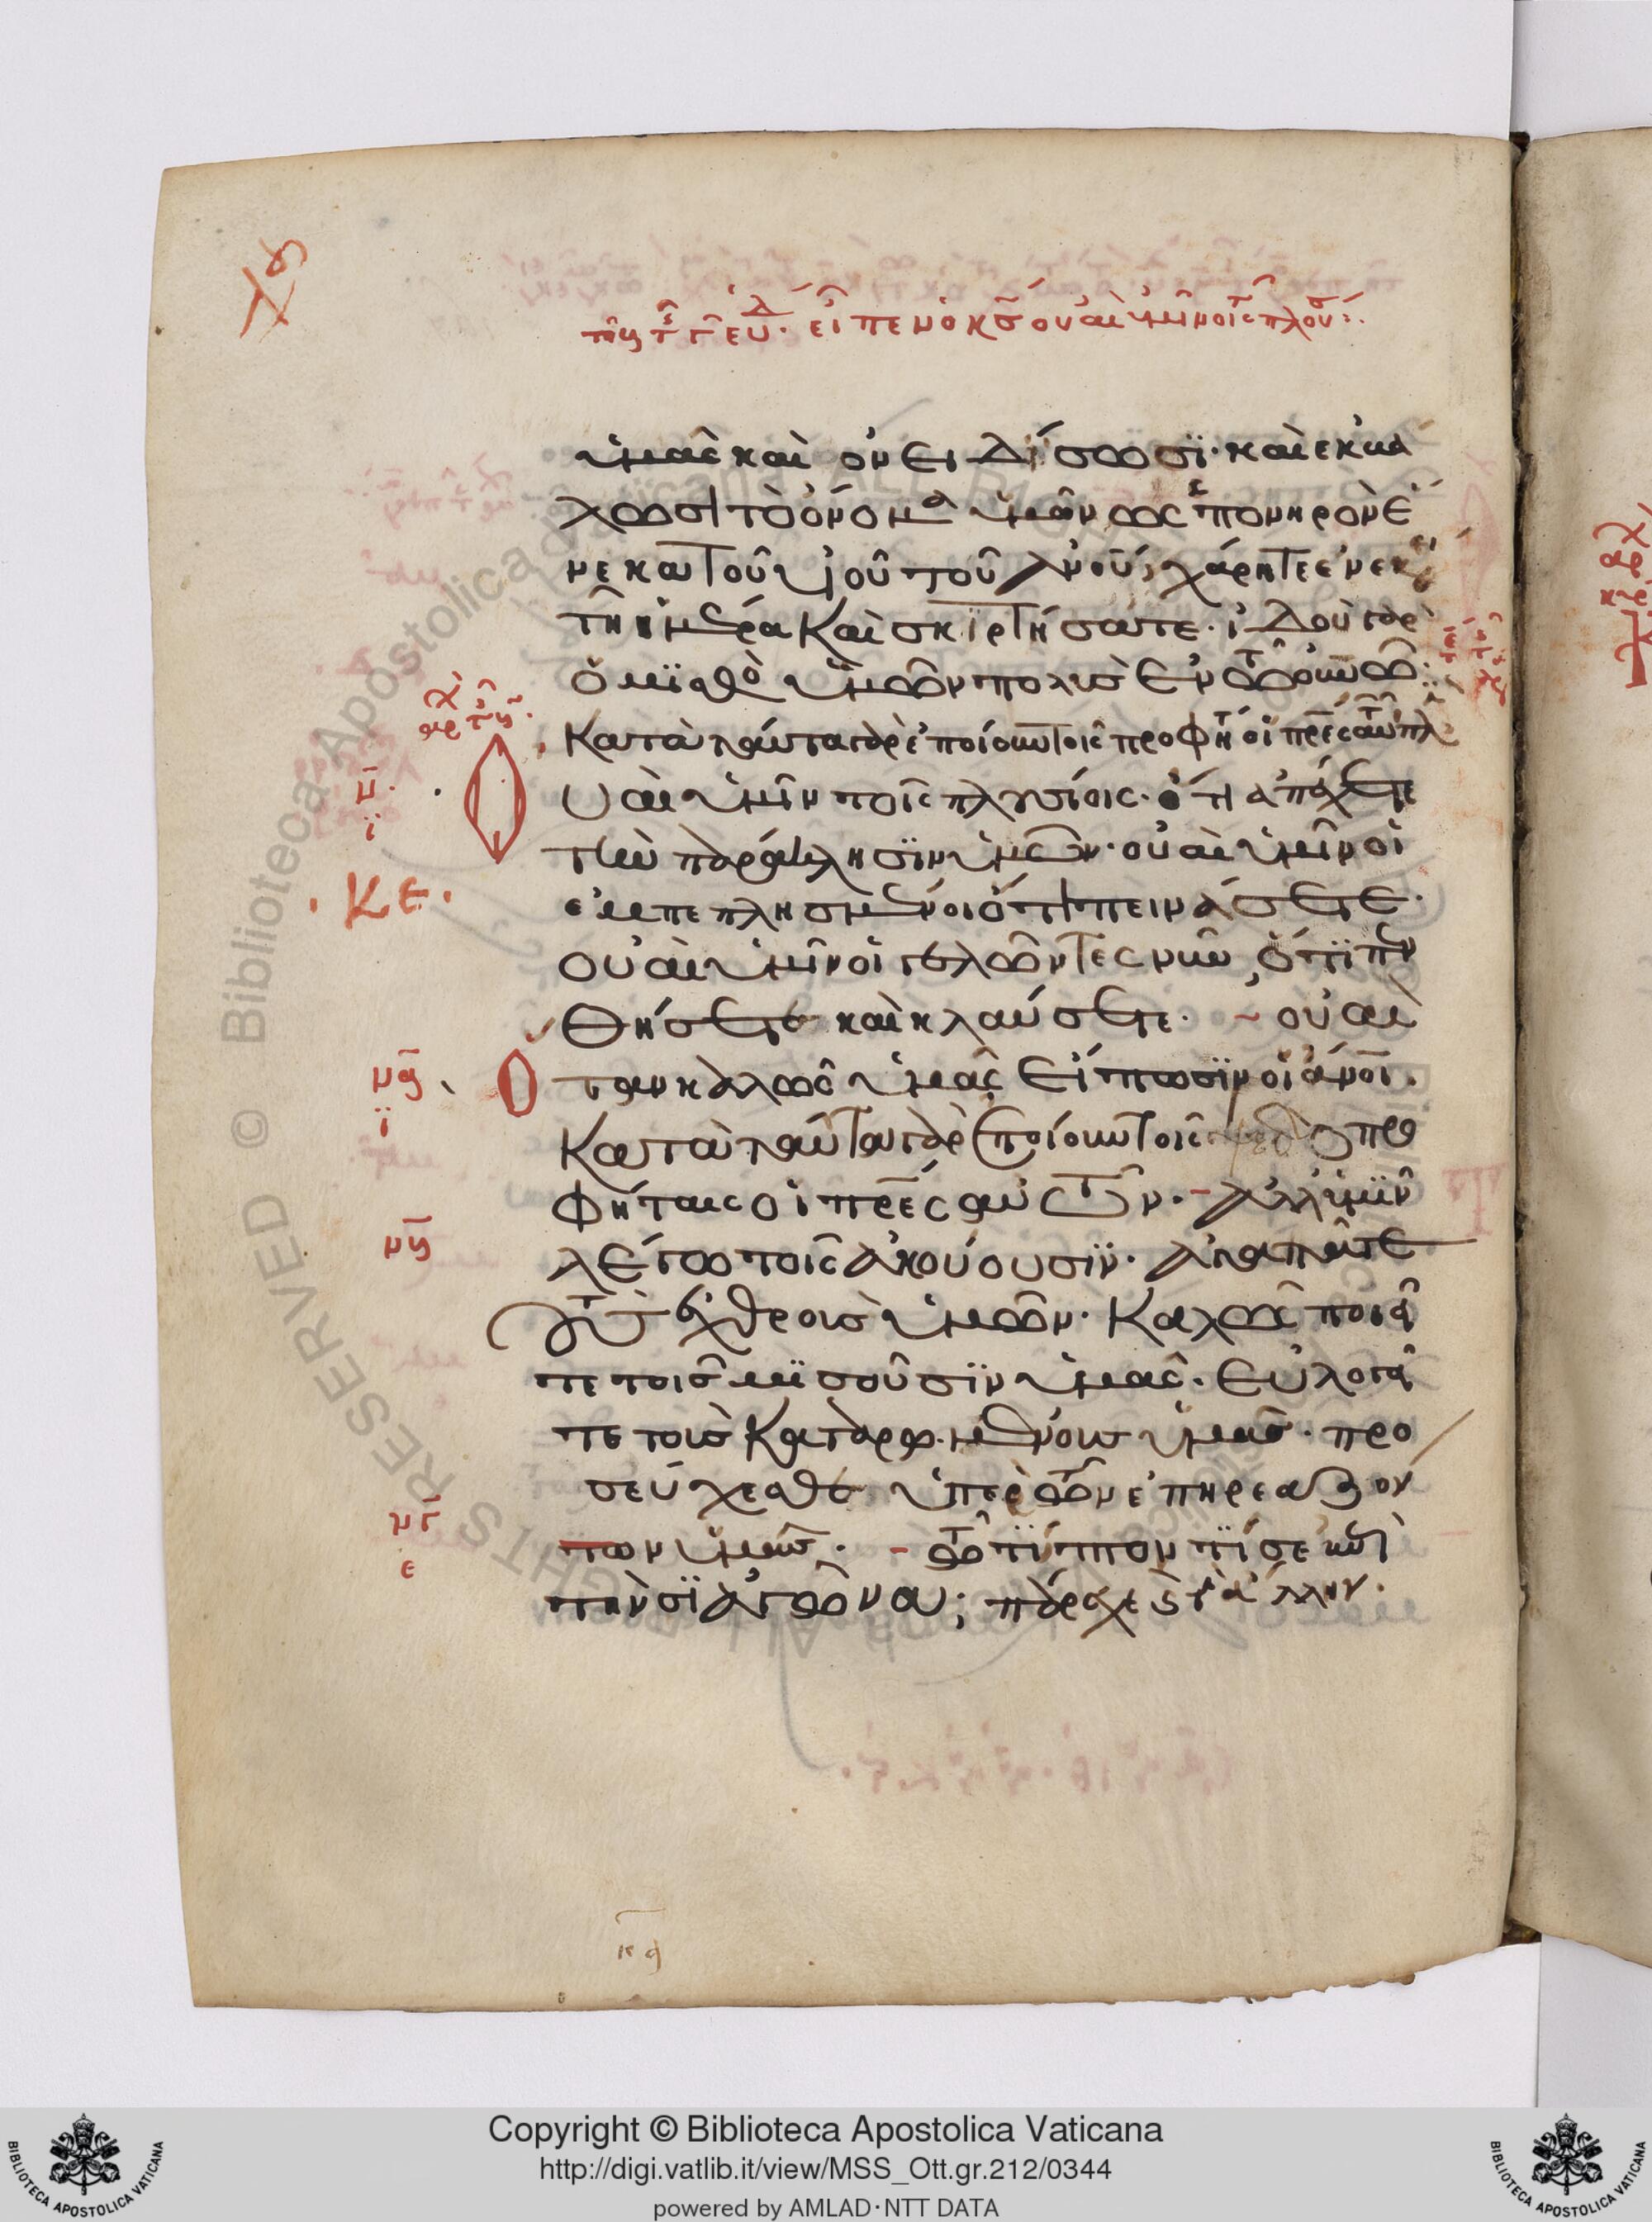 τῆ γ τ ς ευ. εἶπεν ὁ κς οὐαὶ ὑμῖν τοῖς πλου
ὑμᾶς καὶ ὀνειδίσωσϊ· καὶ ἐκβά
λωσι τὸ ὄνομα ὑμῶν ὡς πονηρὸν ἕ
νεκα τοῦ υἱοῦ τοῦ ἀνου· χάρητε ἐν ἐκεί
τῆ ἡμέρα καὶ σκϊρτήσατε· ἰδοὺ γὰρ
ὁ μϊσθὸ ὑμῶν πολὺσ ἐν τῶ οὐνῶ
κατὰ ταῦτα γὰρ ἐποίουν τοῖς προφή οἱ πρες αὐτῶν πλ
Οὐαὶ ὑμῖν τοῖς πλουσίοις· ὅτι ἀπέχετε
τὴν παράκλησϊν ὑμῶν· οὐαὶ ὑμῖν οἱ
ἐμπεπλησμένοι ὅτι πεινάσετε·
οὐαὶ ὑμῖν οἱ γελῶντες νῦν ὅτϊ πεν
θήσετε καὶ κλαύσετε· οὐαὶ
ὅταν καλῶς ὑμᾶς εἴπωσϊν οἱ ἄνοι.
κατὰ ταῦτα γὰρ ἐποίουν τοῖς προ
φήταις οἱ πρες αὐτῶν· ἀλλ ὑμϊν
λέγω τοῖς ἀκούουσϊν· ἀγαπᾶτε
τοὺς ἐχθροὺσ ὑμῶν· καλῶς ποιεῖ
τε τοῖσ μϊσοῦσϊν ὑμᾶς· εὐλογεῖ
τε τοὺσ καταρωμένουσ ὑμᾶσ· προ
σεύχεσθε ὑπὲρ τῶν ἐπηρεαζόν
των ὑμᾶσ· τῶ τύπτοντϊ σε ἐπὶ
τὴν σϊαγῶνα; πάρεχε καὶ τὴν ἄλλην·
αρ
μ
ϊ
ΚΕ
μα
ϊ
μβ
μγ
ε
κθ
Copyright © Biblioteca Apostolica Vaticana
http://digi.vatlib.it/view/MSS_Ott.gr.212/0344
powered by AMLAD·NTT DATA
BIBLIOTECA APOSTOLICA VATICANA
BIBLIOTECA APOSTOLICA VATICANA